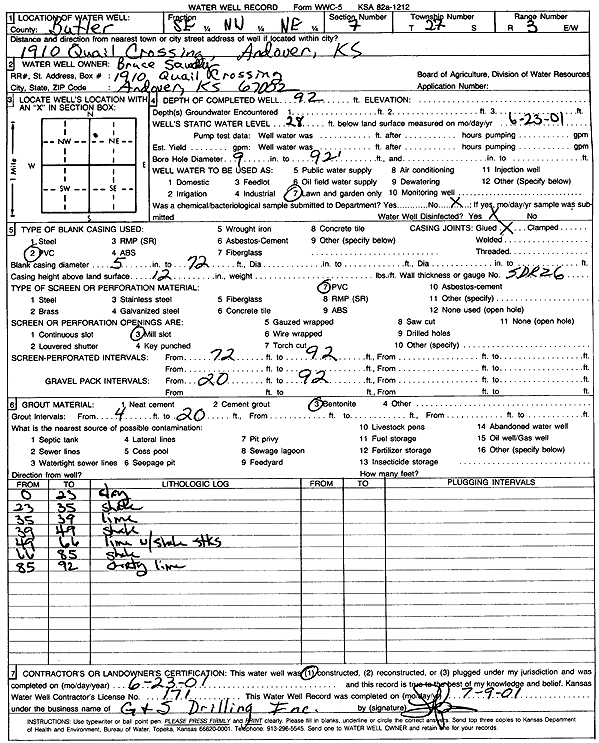 WATER WELL RECORD Form WWC-5 KSA 82a-1212
1 LOCATION OF WATER WELL: Fraction Section Number Township Number Range Number
County: Butler SE ¼ NW ¼ NE ¼ 7 T 27 S R 3 E/W
Distance and direction from nearest town or city street address of well if located within city?
1910 Quail Crossing, Andover, KS
2 WATER WELL OWNER: Bruce
RR#, St. Address, Box # : 1910 Quail Crossing Board of Agriculture, Division of Water Resources
City, State, ZIP Code : Andover, KS 67002 Application Number:
3 LOCATE WELL'S LOCATION WITH AN "X" IN SECTION BOX:
N
NW NE
W E
SW SE
S
1 Mile
4 DEPTH OF COMPLETED WELL 92 ft. ELEVATION:
Depth(s) Groundwater Encountered 1 ft. 2 ft. 3 ft.
WELL'S STATIC WATER LEVEL 28 ft. below land surface measured on mo/day/yr 6-23-01
Pump test data: Well water was ft. after hours pumping gpm
Est. Yield gpm: Well water was ft. after hours pumping gpm
Bore Hole Diameter 9 in. to 92 ft., and in. to ft.
WELL WATER TO BE USED AS: 5 Public water supply 8 Air conditioning 11 Injection well
1 Domestic 3 Feedlot 6 Oil field water supply 9 Dewatering 12 Other (Specify below)
2 Irrigation 4 Industrial 7 Lawn and garden only 10 Monitoring well
Was a chemical/bacteriological sample submitted to Department? Yes No X If yes, mo/day/yr sample was submitted
Water Well Disinfected? Yes X No
5 TYPE OF BLANK CASING USED: 5 Wrought iron 8 Concrete tile CASING JOINTS: Glued X Clamped
1 Steel 3 RMP (SR) 6 Asbestos-Cement 9 Other (specify below) Welded
2 PVC 4 ABS 7 Fiberglass Threaded
Blank casing diameter 5 in. to 72 ft., Dia in. to ft., Dia in. to ft.
Casing height above land surface 12 in., weight lbs./ft. Wall thickness or gauge No. SDR26
TYPE OF SCREEN OR PERFORATION MATERIAL: 7 PVC 10 Asbestos-cement
1 Steel 3 Stainless steel 5 Fiberglass 8 RMP (SR) 11 Other (specify)
2 Brass 4 Galvanized steel 6 Concrete tile 9 ABS 12 None used (open hole)
SCREEN OR PERFORATION OPENINGS ARE: 5 Gauzed wrapped 8 Saw cut 11 None (open hole)
1 Continuous slot 3 Mill slot 6 Wire wrapped 9 Drilled holes
2 Louvered shutter 4 Key punched 7 Torch cut 10 Other (specify)
SCREEN-PERFORATED INTERVALS: From 72 ft. to 92 ft., From ft. to ft.
From ft. to ft., From ft. to ft.
GRAVEL PACK INTERVALS: From 20 ft. to 92 ft., From ft. to ft.
From ft. to ft., From ft. to ft.
6 GROUT MATERIAL: 1 Neat cement 2 Cement grout 3 Bentonite 4 Other
Grout Intervals: From 4 ft. to 20 ft., From ft. to ft., From ft. to ft.
What is the nearest source of possible contamination: 10 Livestock pens 14 Abandoned water well
1 Septic tank 4 Lateral lines 7 Pit privy 11 Fuel storage 15 Oil well/Gas well
2 Sewer lines 5 Cess pool 8 Sewage lagoon 12 Fertilizer storage 16 Other (specify below)
3 Watertight sewer lines 6 Seepage pit 9 Feedyard 13 Insecticide storage
Direction from well? How many feet?
FROM TO LITHOLOGIC LOG FROM TO PLUGGING INTERVALS
0 23 clay
23 35 shale
35 39 lime
39 49 shale
49 66 lime w/shale stks
66 85 shale
85 92 dirty lime
7 CONTRACTOR'S OR LANDOWNER'S CERTIFICATION: This water well was (1) constructed, (2) reconstructed, or (3) plugged under my jurisdiction and was
completed on (mo/day/year) 6-23-01 and this record is true to the best of my knowledge and belief. Kansas
Water Well Contractor's License No. 171 This Water Well Record was completed on (mo/day/yr) 7-9-01
under the business name of G&S Drilling Inc. by (signature)
INSTRUCTIONS: Use typewriter or ball point pen. PLEASE PRESS FIRMLY and PRINT clearly. Please fill in blanks, underline or circle the correct answers. Send top three copies to Kansas Department
of Health and Environment, Bureau of Water, Topeka, Kansas 66620-0001. Telephone: 913-296-5545. Send one to WATER WELL OWNER and retain one for your records.